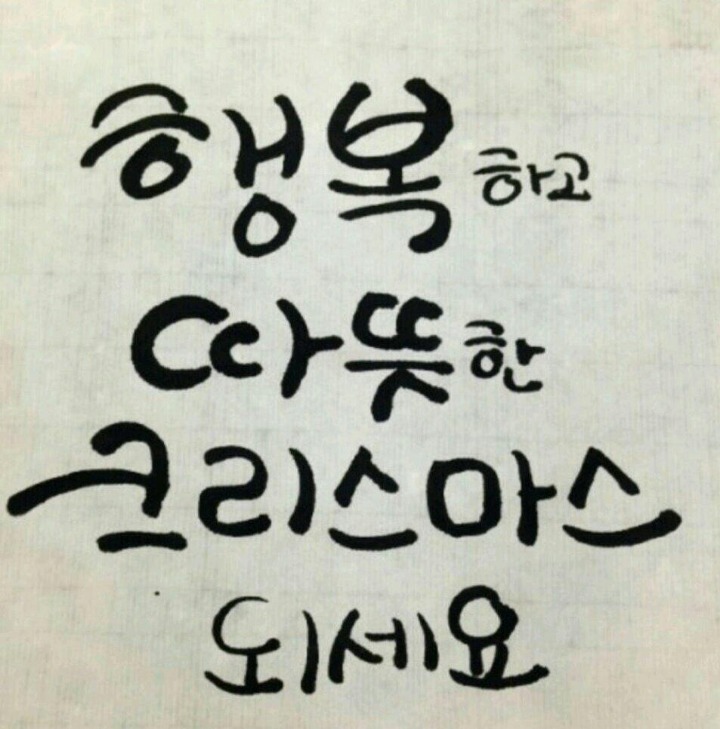 행복하고
따뜻한
크리스마스
되세요